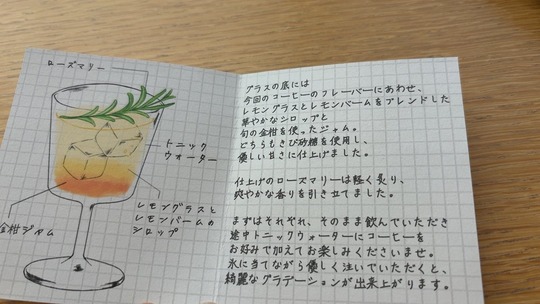 ローズマリー
トニック
ウォーター
レモングラスと
レモンバームの
シロップ
金柑ジャム
グラスの底には
今回のコーヒーのフレーバーにあわせ、
レモングラスとレモンバームをブレンドした
華やかなシロップと
旬の金柑を使ったジャム。
どちらもきび砂糖を使用し、
優しい甘さに仕上げました。
仕上げのローズマリーは軽く炙り、
爽やかな香りを引き立てました。
まずはそれぞれ、そのまま飲んでいただき
途中トニックウォーターにコーヒーを
お好みで加えてお楽しみくださいませ。
氷に当てながら優しく注いでいただくと、
綺麗なグラデーションが出来上がります。